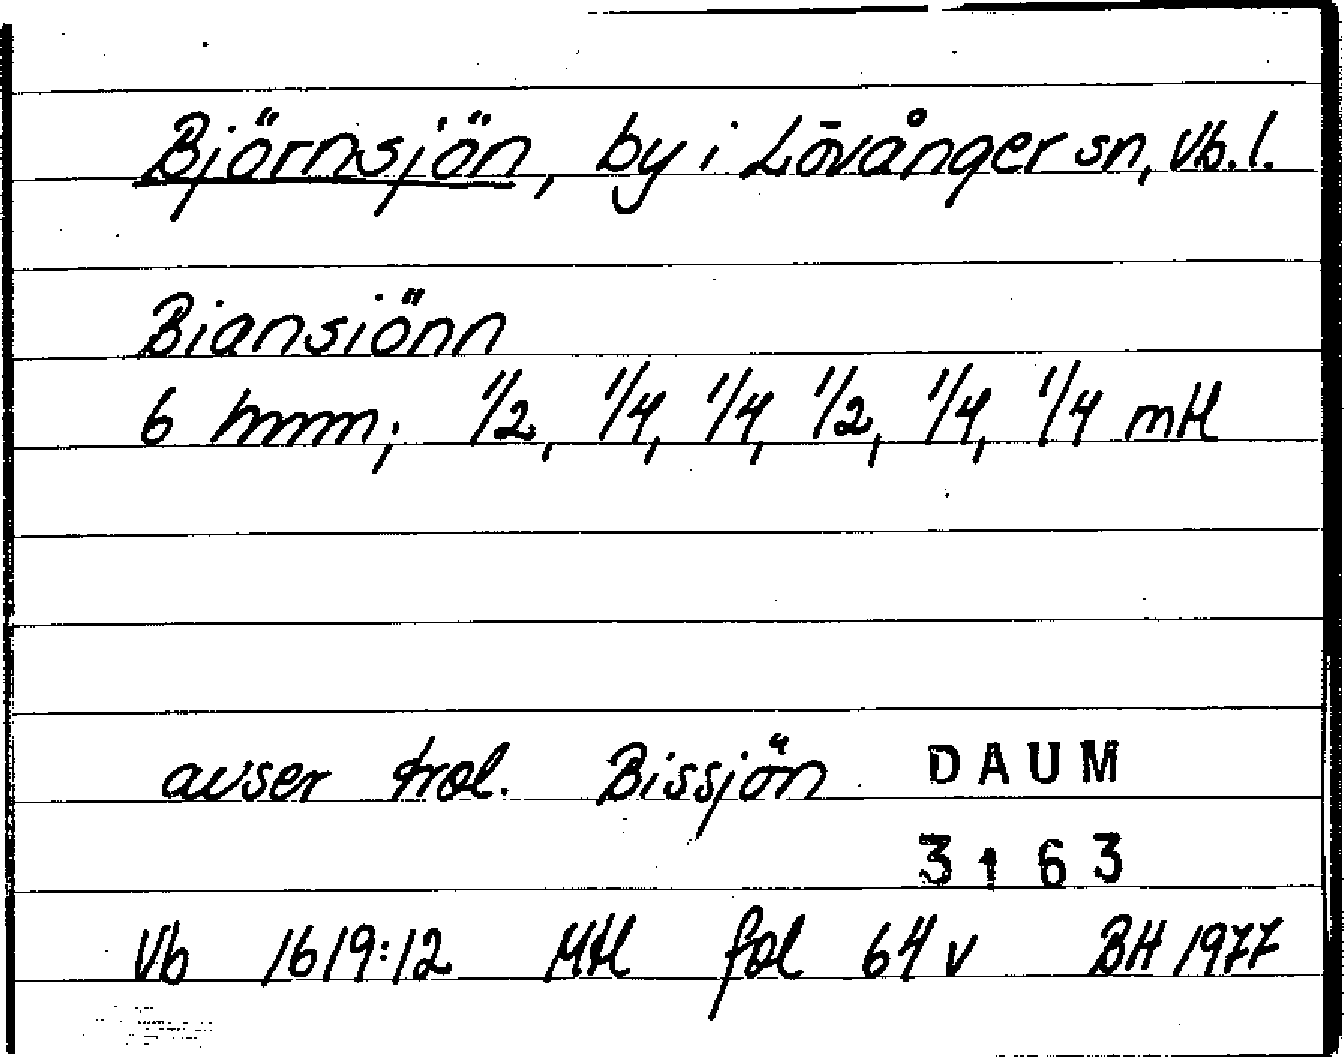 Björnsjön, by i Lövånger sn, Vb. l.
Biansiönn
6 hmm; 1/2, 1/4, 1/4, 1/2, 1/4, 1/4 mtl
avser trol. Bissjön
DAUM
3163
Vb 1619:12 Mtl fol 64 v BH 1977